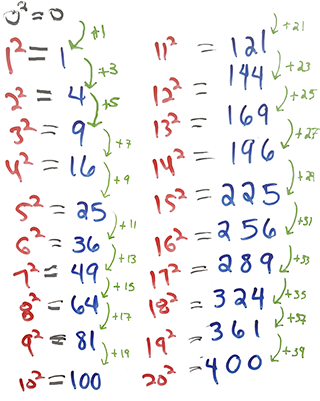 0² = 0
+1
1² = 1
+3
2² = 4
+5
3² = 9
+7
4² = 16
+9
5² = 25
+11
6² = 36
+13
7² = 49
+15
8² = 64
+17
9² = 81
+19
10² = 100
+21
11² = 121
+23
12² = 144
+25
13² = 169
+27
14² = 196
+29
15² = 225
+31
16² = 256
+33
17² = 289
+35
18² = 324
+37
19² = 361
+39
20² = 400